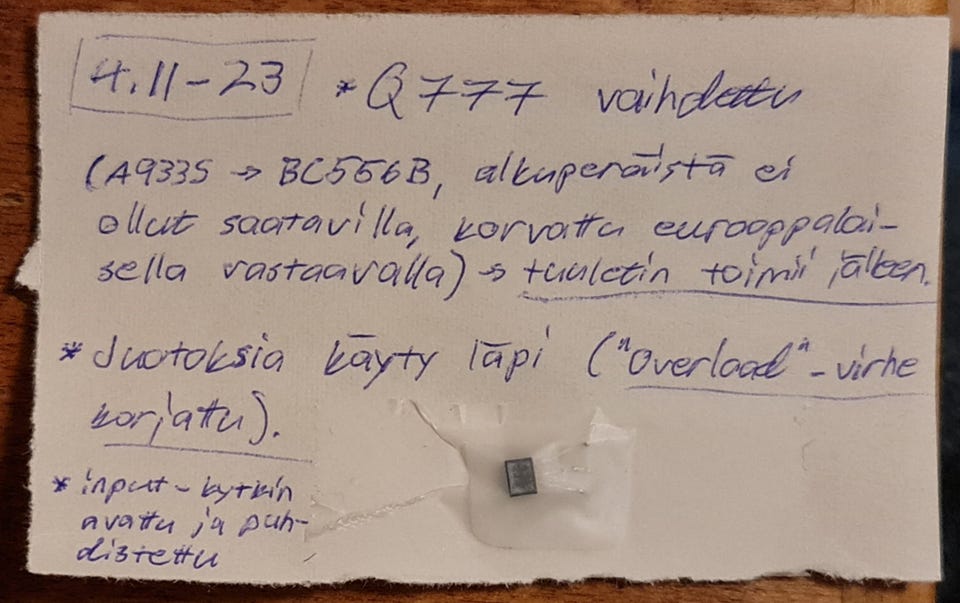 4.11-23 * Q777 vaihdettu
(A933S → BC556B, alkuperäistä ei
ollut saatavilla, korvattu eurooppalai-
sella vastaavalla) → tuuletin toimii jälleen.
* Juotoksia käyty läpi ("Overload"-virhe
korjattu).
* input-kytkin
avattu ja puh-
distettu